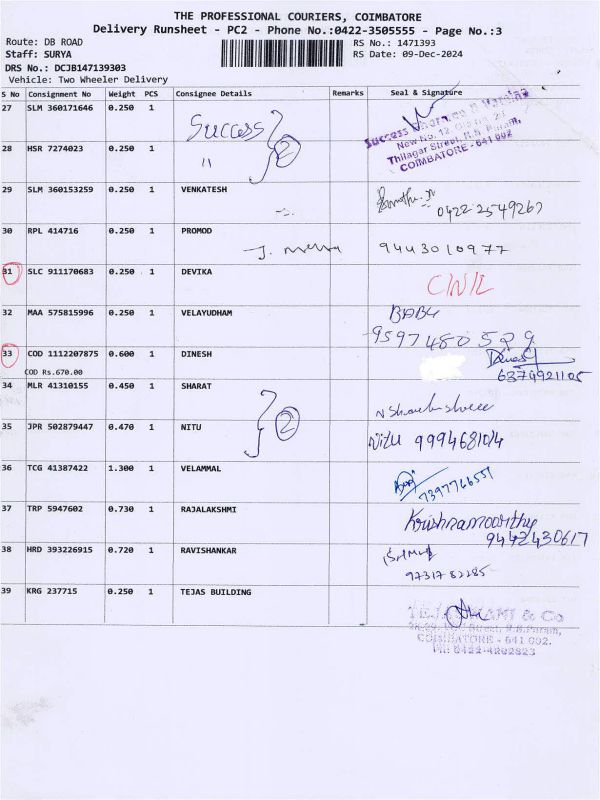 THE PROFESSIONAL COURIERS, COIMBATORE
Delivery Runsheet - PC2 - Phone No.:0422-3505555 - Page No.:3
Route: DB ROAD RS No.: 1471393
Staff: SURYA RS Date: 09-Dec-2024
DRS No.: DCJB147139303
Vehicle: Two Wheeler Delivery
S No Consignment No Weight PCS Consignee Details Remarks Seal & Signature
27 SLM 360171646 0.250 1 Success
New No. 12, Old No. 27
Thilagar Street, R.S. Puram,
COIMBATORE - 641 002
28 HSR 7274023 0.250 1 " 2
29 SLM 360153259 0.250 1 VENKATESH
0422 2549267
30 RPL 414716 0.250 1 PROMOD
9443010977
31 SLC 911170683 0.250 1 DEVIKA
32 MAA 575815996 0.250 1 VELAYUDHAM BABU
9597480529
33 COD 1112207875 0.600 1 DINESH
COD Rs.670.00 6374921105
34 MLR 41310155 0.450 1 SHARAT
35 JPR 502879447 0.470 1 NITU 2 Nitu 9994681014
36 TCG 41387422 1.300 1 VELAMMAL
7397766551
37 TRP 5947602 0.730 1 RAJALAKSHMI Krishnamoorthy
9442430617
38 HRD 393226915 0.720 1 RAVISHANKAR
9731782285
39 KRG 237715 0.250 1 TEJAS BUILDING
& Co
COIMBATORE - 641 002.
PH: 0422-4202823